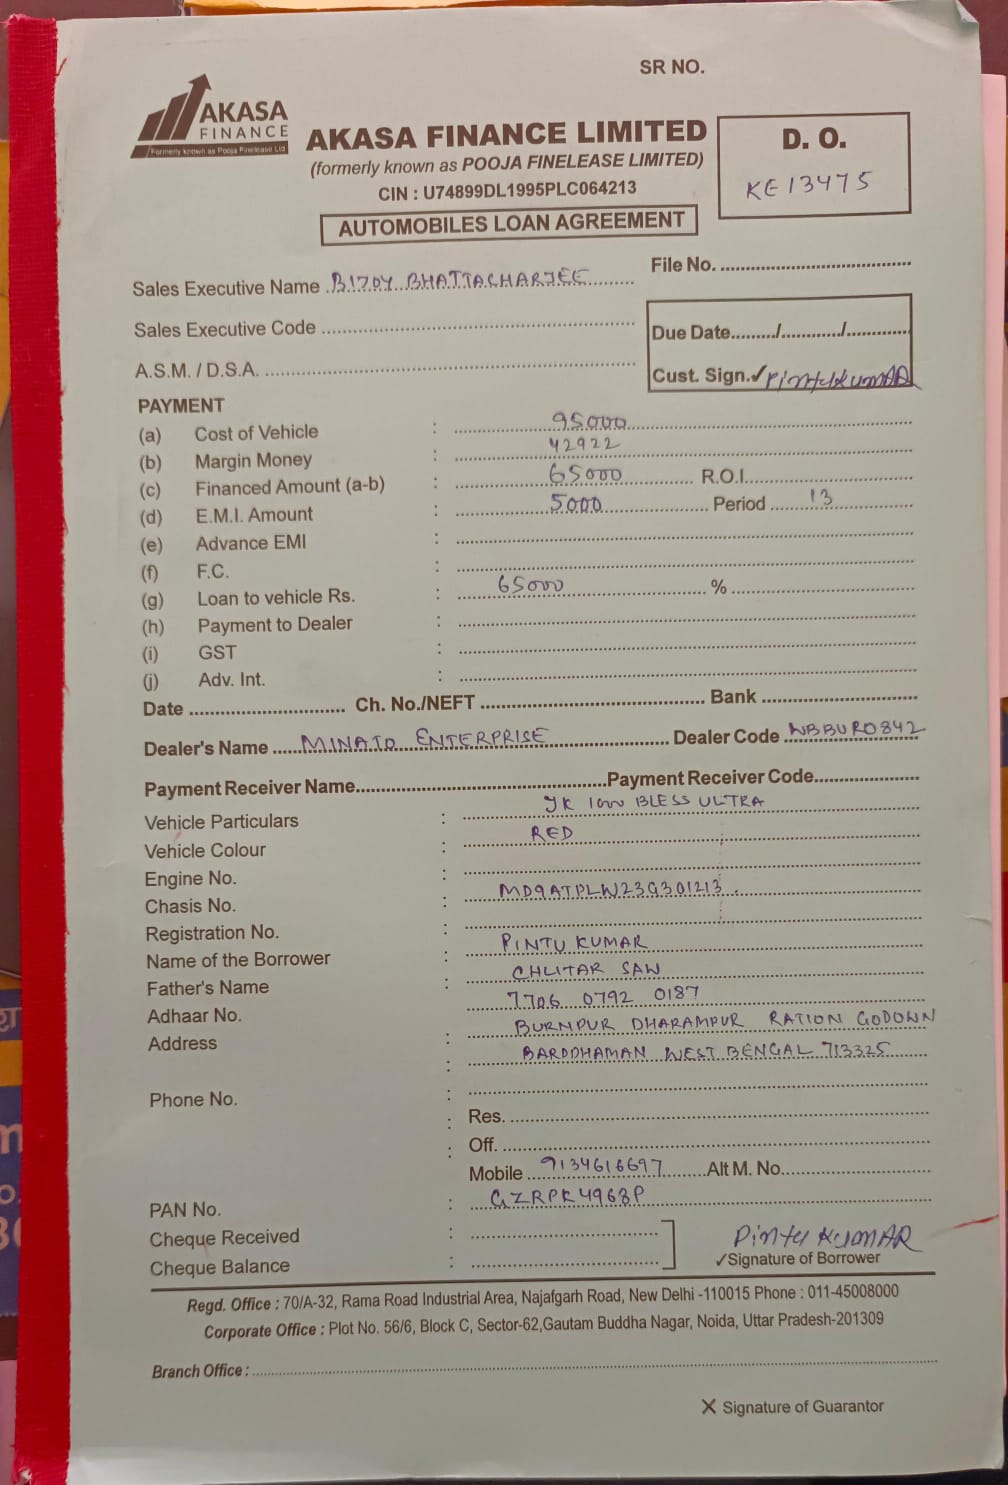 SR NO.
AKASA
FINANCE
Formerly known as Pooja Finelease Ltd
AKASA FINANCE LIMITED
(formerly known as POOJA FINELEASE LIMITED)
CIN : U74899DL1995PLC064213
AUTOMOBILES LOAN AGREEMENT
D. O.
KE13475
Sales Executive Name BIJOY BHATTACHARJEE
File No.
Sales Executive Code
A.S.M. / D.S.A.
Due Date......../............/............
Cust. Sign.✓ Pintu KumAR
PAYMENT
(a) Cost of Vehicle : 95000
(b) Margin Money : 42922
(c) Financed Amount (a-b) : 65000 R.O.I.
(d) E.M.I. Amount : 5000 Period 13
(e) Advance EMI :
(f) F.C. :
(g) Loan to vehicle Rs. : 65000 %
(h) Payment to Dealer :
(i) GST :
(j) Adv. Int. :
Date Ch. No./NEFT Bank
Dealer's Name MINATO ENTERPRISE Dealer Code WBBUR0842
Payment Receiver Name Payment Receiver Code
Vehicle Particulars : BLESS ULTRA
Vehicle Colour : RED
Engine No. :
Chasis No. : MD9ATPLW23G301213
Registration No. :
Name of the Borrower : PINTU KUMAR
Father's Name : CHLITAR SAW
Adhaar No. 7706 0792 0187
Address : BURNPUR DHARAMPUR RATION GODOWN
: BARDDHAMAN WEST BENGAL 713325
Phone No. :
: Res.
: Off.
Mobile 9134616697 Alt M. No.
PAN No. : GZRPK4968P
Cheque Received :
Cheque Balance :
Pintu KumAR
✓Signature of Borrower
Regd. Office : 70/A-32, Rama Road Industrial Area, Najafgarh Road, New Delhi -110015 Phone : 011-45008000
Corporate Office : Plot No. 56/6, Block C, Sector-62,Gautam Buddha Nagar, Noida, Uttar Pradesh-201309
Branch Office :
X Signature of Guarantor